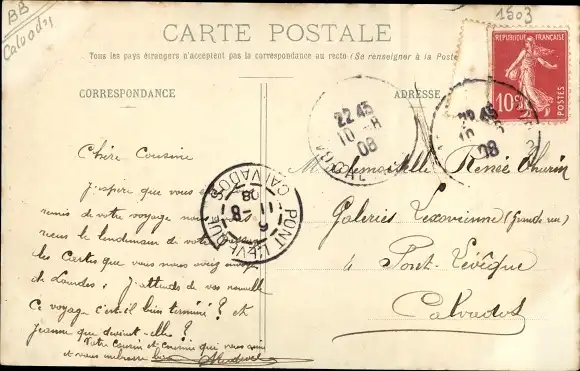 BB
Calvados
1503
CARTE POSTALE
Tous les pays étrangers n'acceptent pas la correspondance au recto (Se renseigner à la Poste
CORRESPONDANCE
ADRESSE
REPUBLIQUE FRANÇAISE
10c
POSTES
22 45
10 - 8
08
22 45
08
PONT L'EVEQUE
CALVADOS
11 - 8
08
Chère Cousine
J'espère que vous
remis de votre voyage nous
reçu le lendemain de votre
les cartes que vous nous avez
de Lourdes. J'attends de vos nouvelles
Ce voyage c'est-il bien terminé? et
Jeanne que devient-elle?
Votre cousin et cousine qui vous aime
et vous embrasse bien
Mademoiselle Renée
Galeries Lexovienne (Grande rue)
à Pont-Lévêque
Calvados